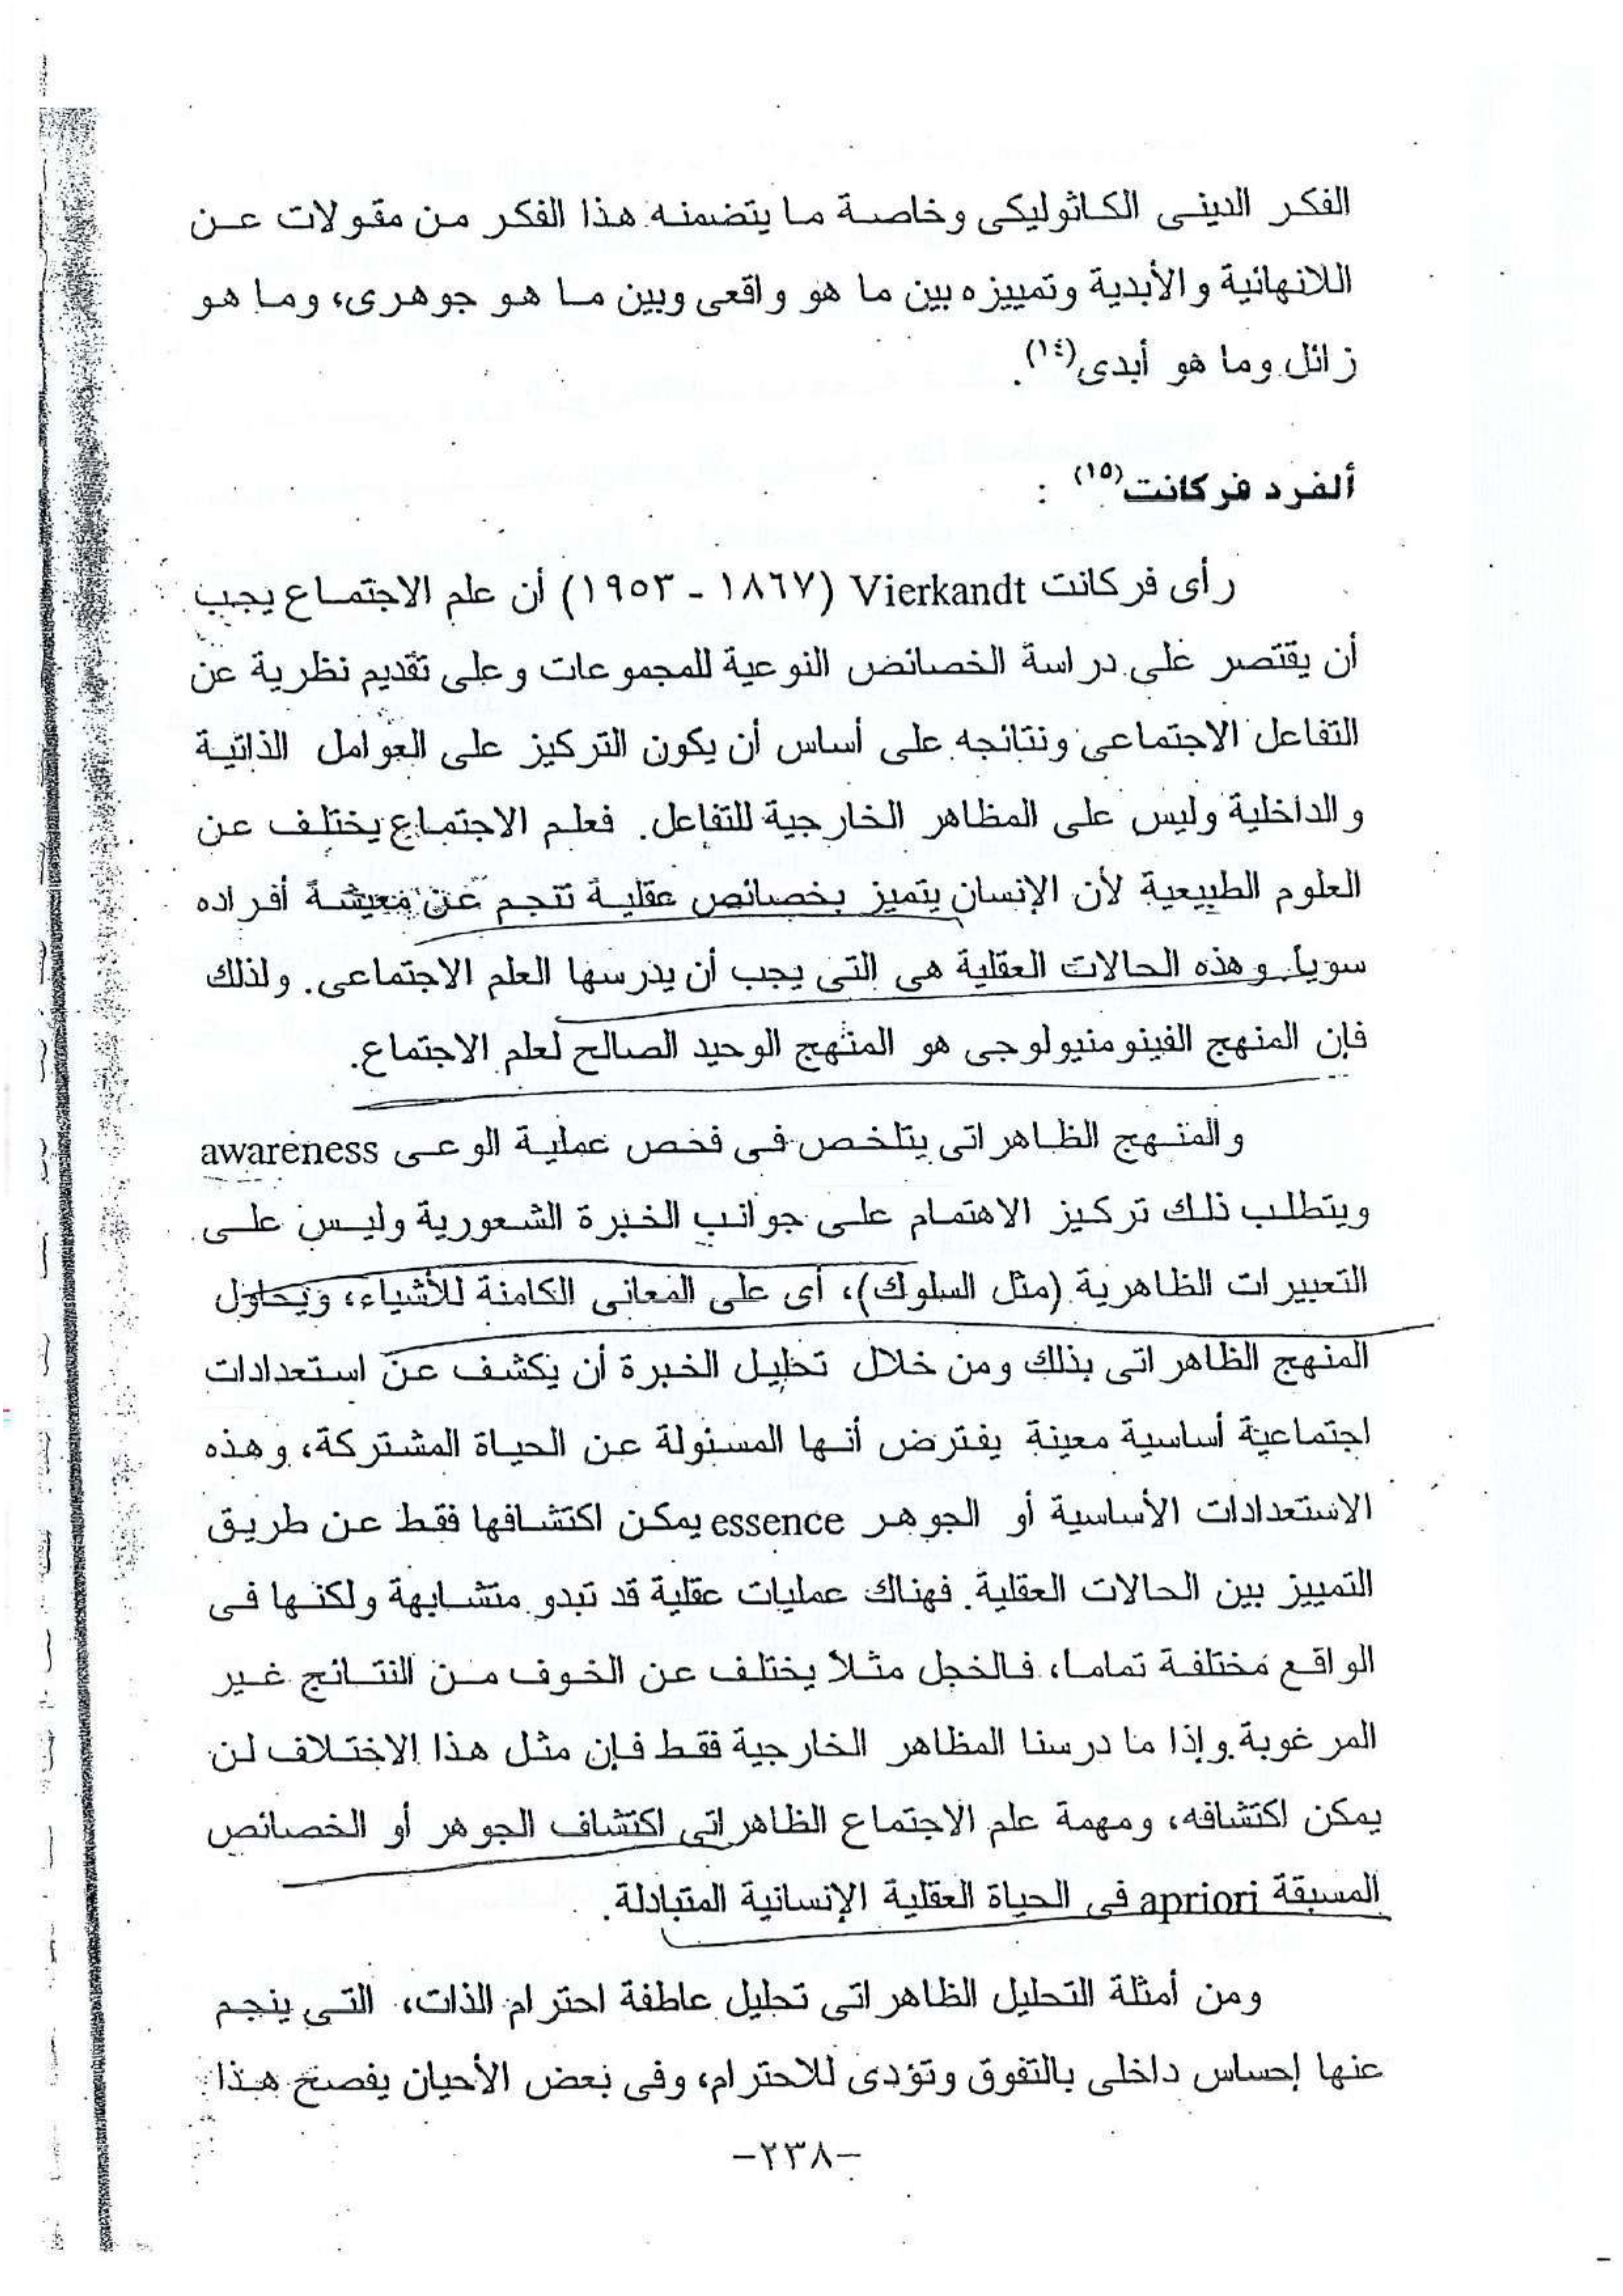 الفكر الدينى الكاثوليكى وخاصة ما يتضمنه هذا الفكر من مقولات عن
اللانهائية والأبدية وتمييزه بين ما هو واقعى وبين ما هو جوهرى، وما هو
زائل وما هو أبدى(١٤).
ألفرد فركانت(١٥) :
رأى فركانت Vierkandt (١٨٦٧ - ١٩٥٣) أن علم الاجتماع يجب
أن يقتصر على دراسة الخصائص النوعية للمجموعات وعلى تقديم نظرية عن
التفاعل الاجتماعى ونتائجه على أساس أن يكون التركيز على العوامل الذاتية
والداخلية وليس على المظاهر الخارجية للتفاعل. فعلم الاجتماع يختلف عن
العلوم الطبيعية لأن الإنسان يتميز بخصائص عقلية تنجم عن معيشة أفراده
سوياً وهذه الحالات العقلية هى التى يجب أن يدرسها العلم الاجتماعى. ولذلك
فإن المنهج الفينومنيولوجى هو المنهج الوحيد الصالح لعلم الاجتماع.
والمنهج الظاهراتى يتلخص فى فحص عملية الوعى awareness
ويتطلب ذلك تركيز الاهتمام على جوانب الخبرة الشعورية وليس على
التعبيرات الظاهرية (مثل السلوك)، أى على المعانى الكامنة للأشياء، ويحاول
المنهج الظاهراتى بذلك ومن خلال تحليل الخبرة أن يكشف عن استعدادات
اجتماعية أساسية معينة يفترض أنها المسئولة عن الحياة المشتركة، وهذه
الاستعدادات الأساسية أو الجوهر essence يمكن اكتشافها فقط عن طريق
التمييز بين الحالات العقلية. فهناك عمليات عقلية قد تبدو متشابهة ولكنها فى
الواقع مختلفة تماما، فالخجل مثلا يختلف عن الخوف من النتائج غير
المرغوبة وإذا ما درسنا المظاهر الخارجية فقط فإن مثل هذا الاختلاف لن
يمكن اكتشافه، ومهمة علم الاجتماع الظاهراتى اكتشاف الجوهر أو الخصائص
المسبقة apriori فى الحياة العقلية الإنسانية المتبادلة.
ومن أمثلة التحليل الظاهراتى تحليل عاطفة احترام الذات، التى ينجم
عنها إحساس داخلى بالتفوق وتؤدى للاحترام، وفى بعض الأحيان يفصح هذا
-٢٣٨-